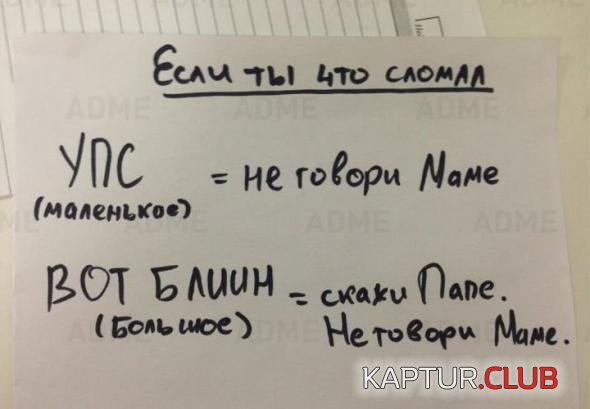 Если ты что сломал
УПС = не говори Маме
(маленькое)
ВОТ БЛИИН = скажи Папе.
(Большое) Не говори Маме.
KAPTUR.CLUB
ADME
ADME
ADME
ADME
ADME
ADME